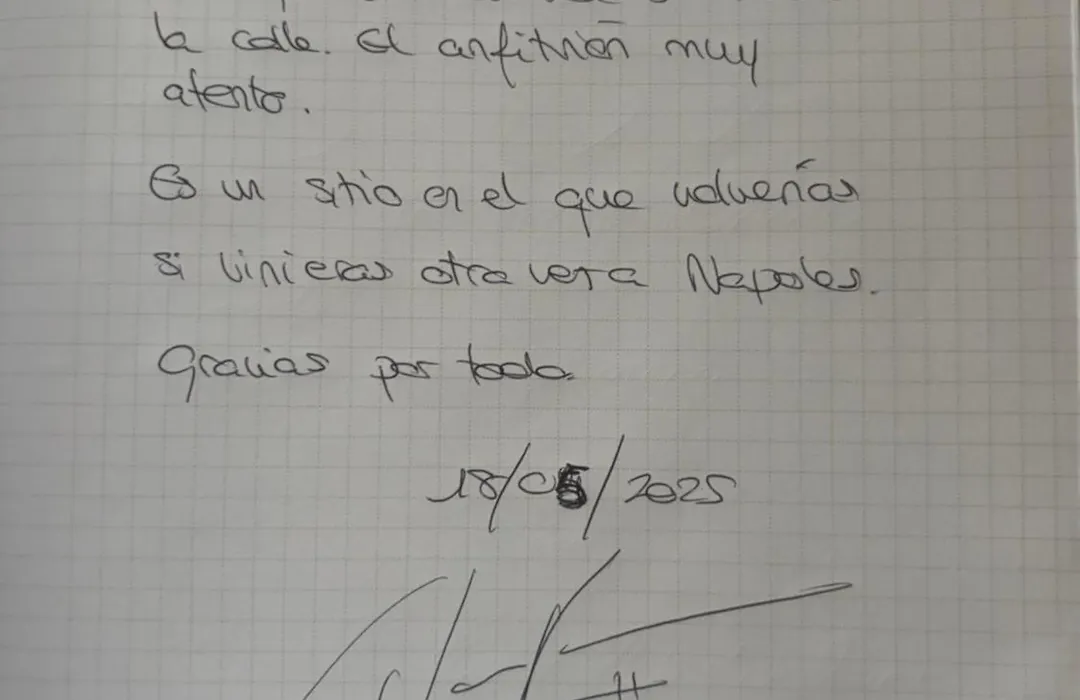 la calle. El anfitrión muy
atento.
Es un sitio en el que volverías
si vinieras otra vez a Napoles.
Gracias por todo.
18/05/2025